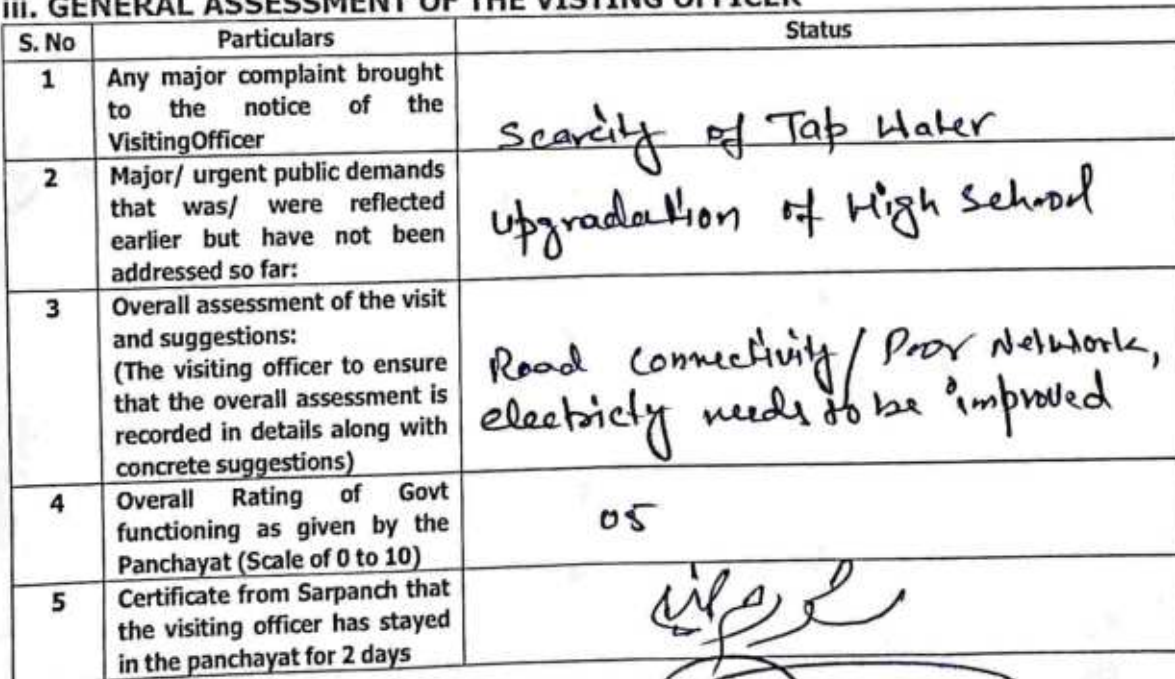 iii. GENERAL ASSESSMENT OF THE VISTING OFFICER
S. No Particulars Status
1 Any major complaint brought
to the notice of the
VisitingOfficer
Scarcity of Tap Water
2 Major/ urgent public demands
that was/ were reflected
earlier but have not been
addressed so far:
Upgradation of High School
3 Overall assessment of the visit
and suggestions:
(The visiting officer to ensure
that the overall assessment is
recorded in details along with
concrete suggestions)
Road Connectivity / Poor Network,
electricty needs to be improved
4 Overall Rating of Govt
functioning as given by the
Panchayat (Scale of 0 to 10)
05
5 Certificate from Sarpanch that
the visiting officer has stayed
in the panchayat for 2 days